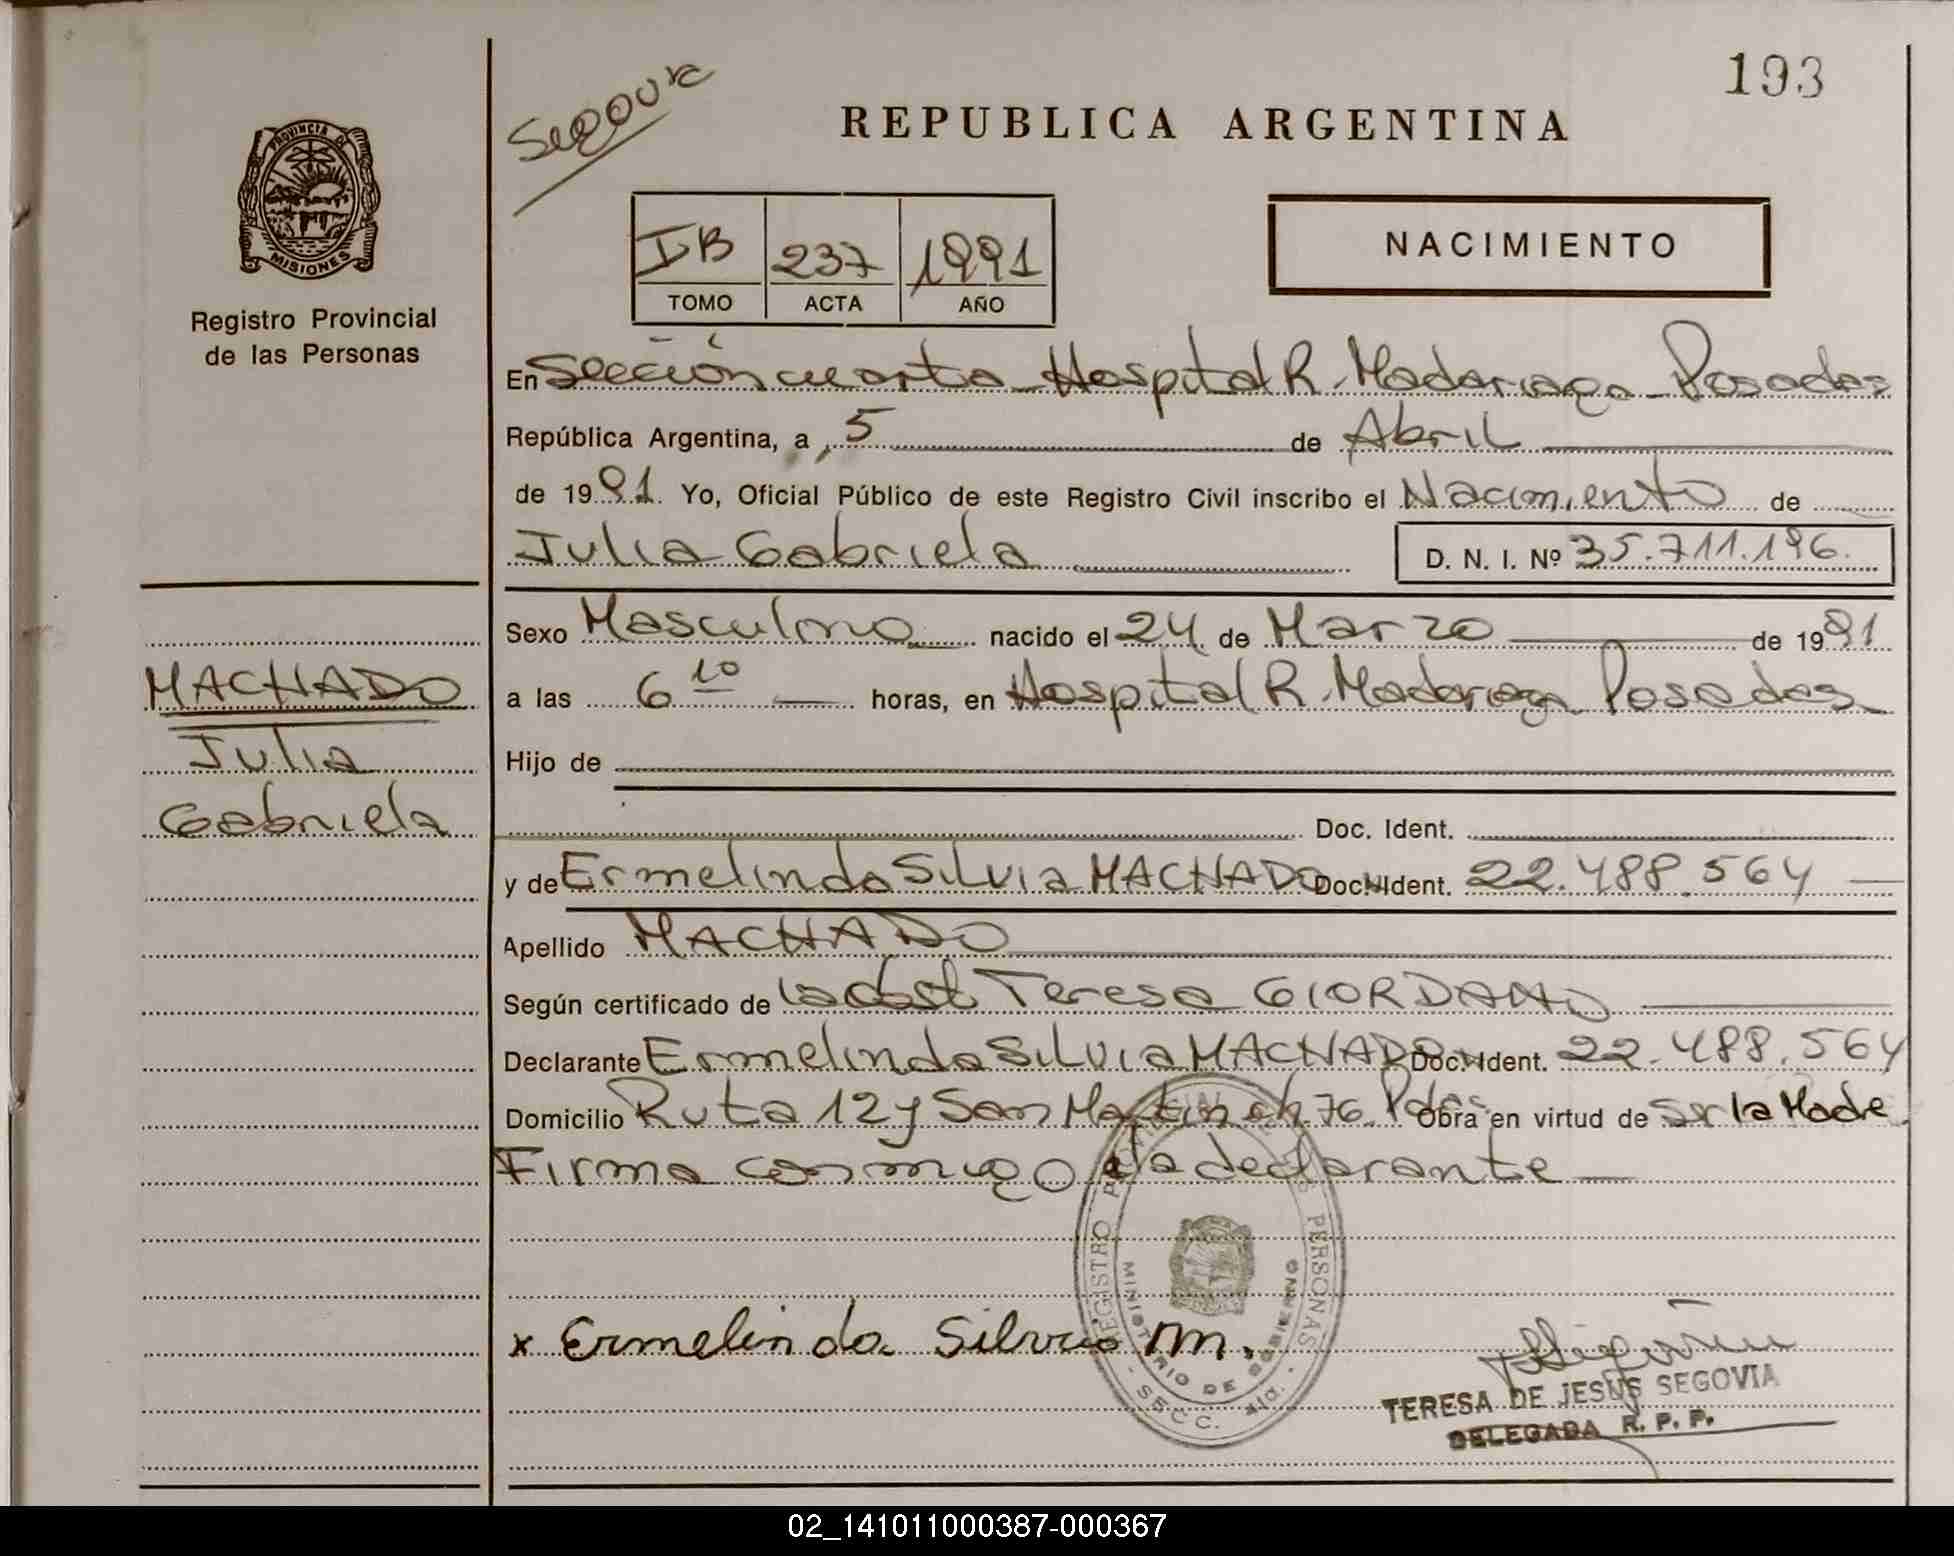 193
Segovia
REPUBLICA ARGENTINA
PROVINCIA DE
MISIONES
Registro Provincial
de las Personas
NACIMIENTO
IB 237 1991
TOMO ACTA AÑO
En Sección cuarta Hospital R. Madariaga Posadas
República Argentina, a 5 de Abril
de 1991. Yo, Oficial Público de este Registro Civil inscribo el Nacimiento de
Julia Gabriela D. N. I. Nº 35.711.196.
Sexo Masculino nacido el 24 de Marzo de 1991
a las 6 10 horas, en Hospital R. Madariaga Posadas
Hijo de
Doc. Ident.
y de Ermelinda Silvia MACHADO Doc. Ident. 22.488.564
Apellido MACHADO
Según certificado de la Obst Teresa GIORDANO
Declarante Ermelinda Silvia MACHADO Doc. Ident. 22.488.564
Domicilio Ruta 12 y San Martin ch. 76. Pdas Obra en virtud de Ser la Madre
Firma conmigo la declarante
MACHADO
Julia
Gabriela
x Ermelinda Silvia M.
REGISTRO PROVINCIAL DE LAS PERSONAS
MINISTERIO DE GOBIERNO
SECC. 4ta.
TERESA DE JESUS SEGOVIA
DELEGADA R. P. P.
02_141011000387-000367